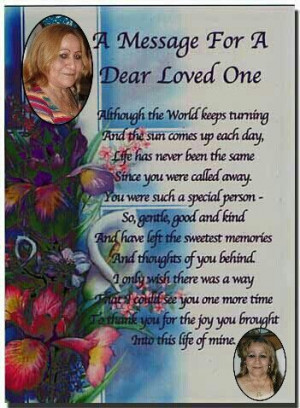 A Message For A
Dear Loved One
Although the World keeps turning
And the sun comes up each day,
Life has never been the same
Since you were called away.
You were such a special person -
So, gentle, good and kind
And have left the sweetest memories
And thoughts of you behind.
I only wish there was a way
That I could see you one more time
To thank you for the joy you brought
Into this life of mine.